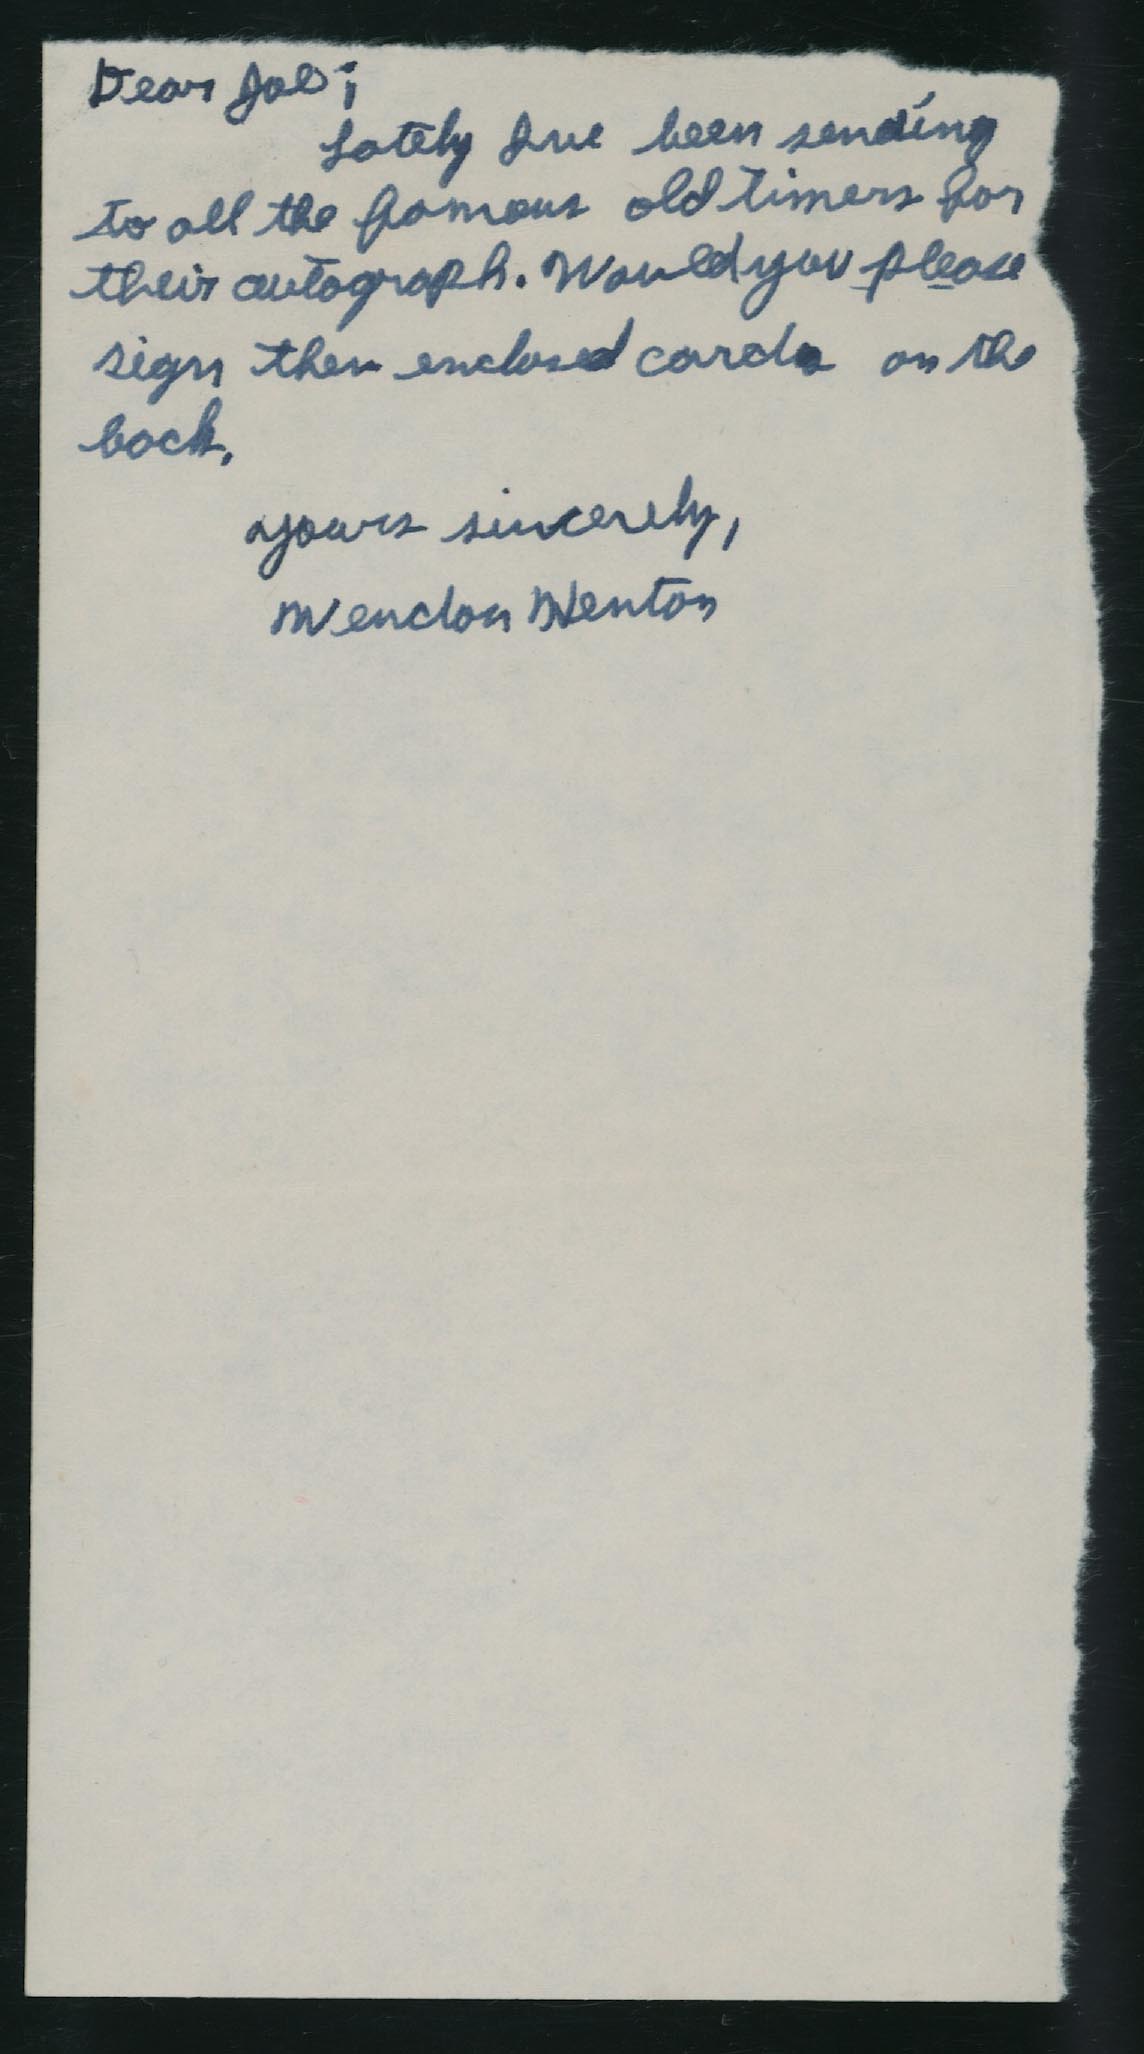 Dear Joe;
Lately I've been sending
to all the famous old timers for
their autograph. Would you please
sign then enclosed cards on the
back.
Yours sincerely,
Wendon Henton